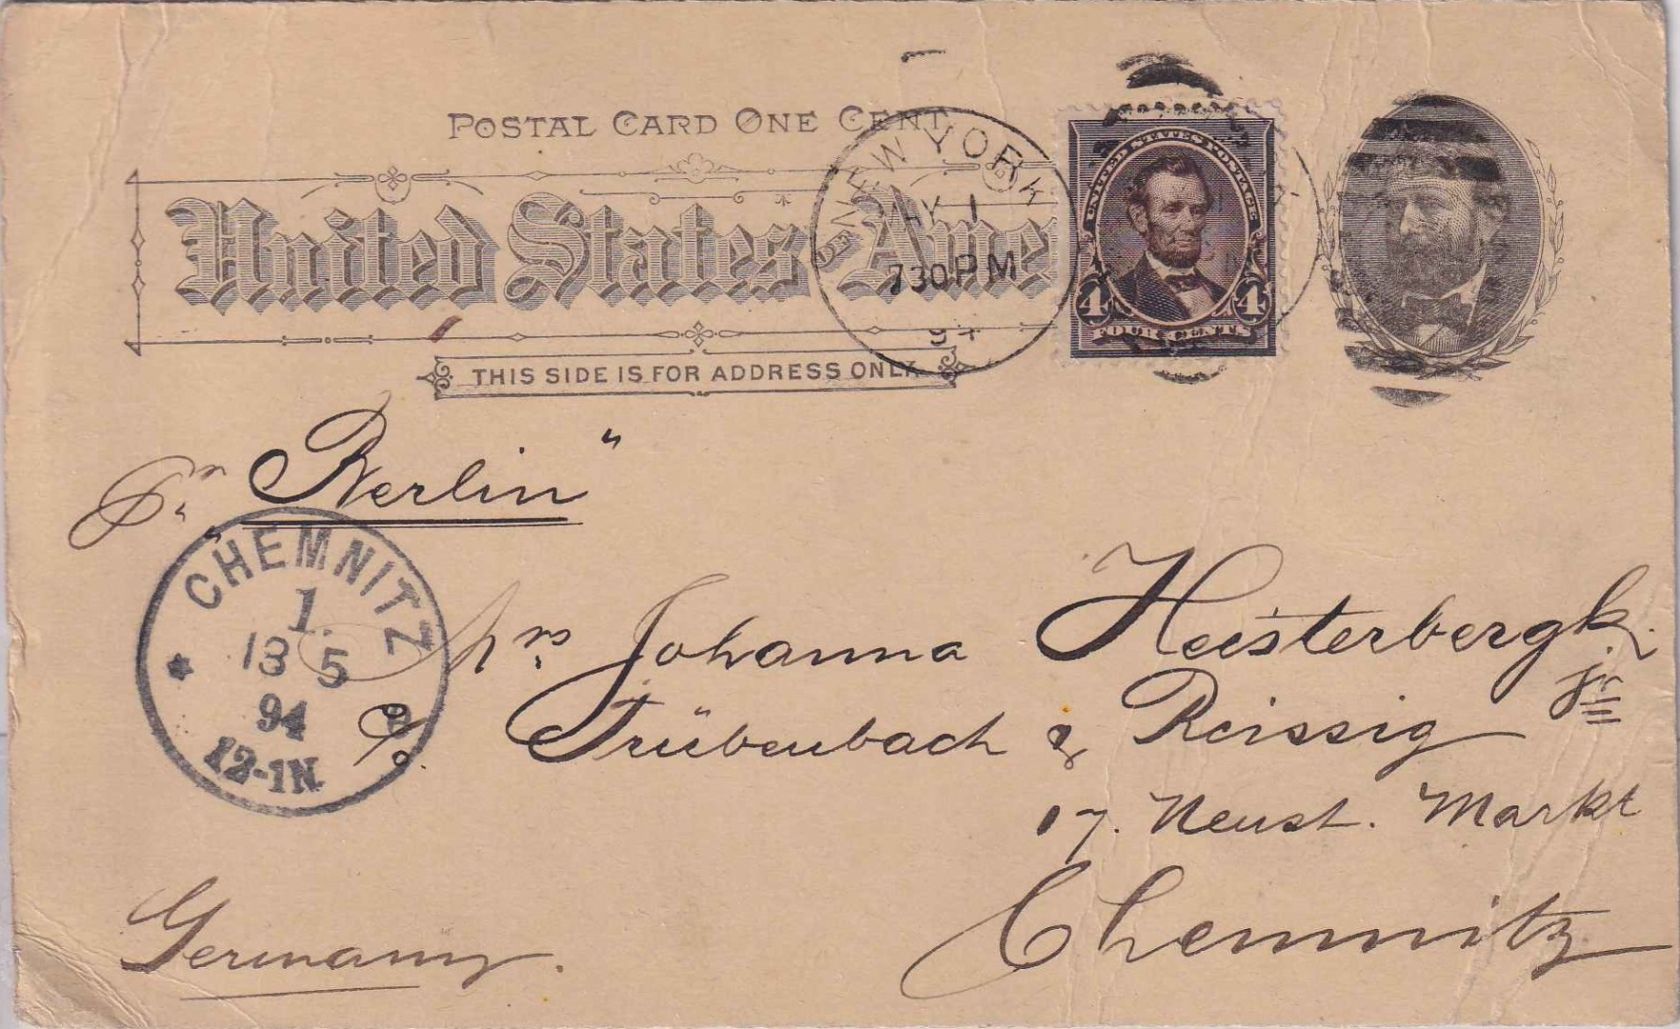 POSTAL CARD ONE CENT
United States
NEW YORK
MY 1
730PM
94
UNITED STATES POSTAGE
4 4
FOUR CENTS
THIS SIDE IS FOR ADDRESS ONLY.
Pr "Berlin"
CHEMNITZ
1.
13 5
94
12-1N.
Mrs Johanna Heisterbergk jr
c/o. Trübenbach & Reissig
17. Neust. Markt
Chemnitz
Germany.